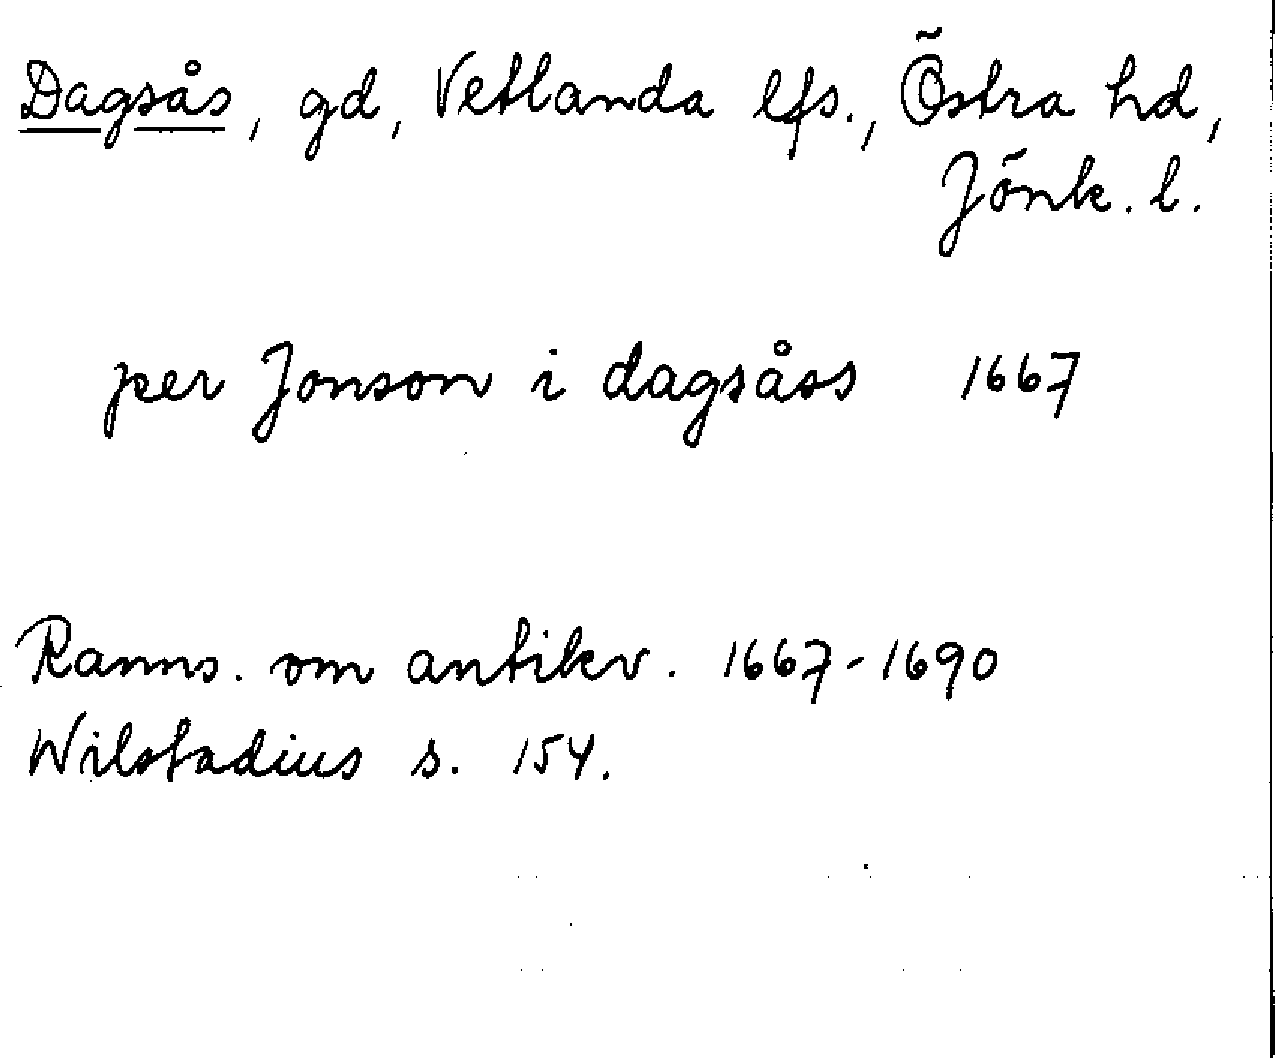 Dagsås, gd, Vetlanda lfs., Östra hd,
Jönk. l.
per Jonson i dagsåss 1667
Ranns. om antikv. 1667-1690
Wilstadius s. 154.